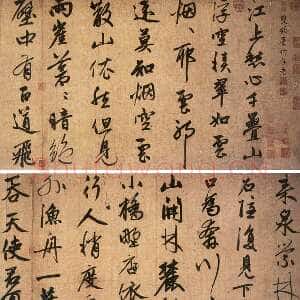 江上愁心千疊山
浮空積翠如雲
烟耶雲耶
遠莫知烟空雲
散山依然但見
兩崖蒼蒼暗絕
中有百道飛
來泉縈林
石隱復見下
口為奔川
山開林麓
小橋野店依
行人稍度
外漁舟一葉
吞天使君